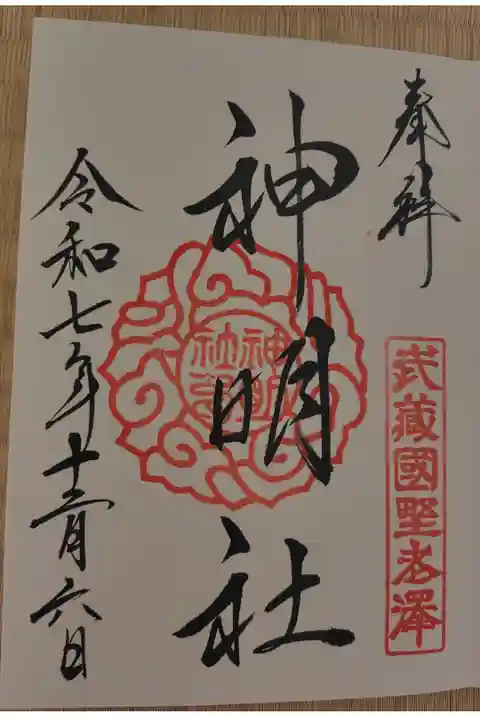 奉拝
武藏國野老澤
神明社
令和七年十二月六日